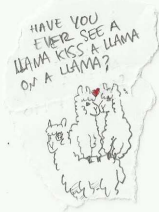 HAVE YOU
EVER SEE A
LLAMA KISS A LLAMA
ON A LLAMA?